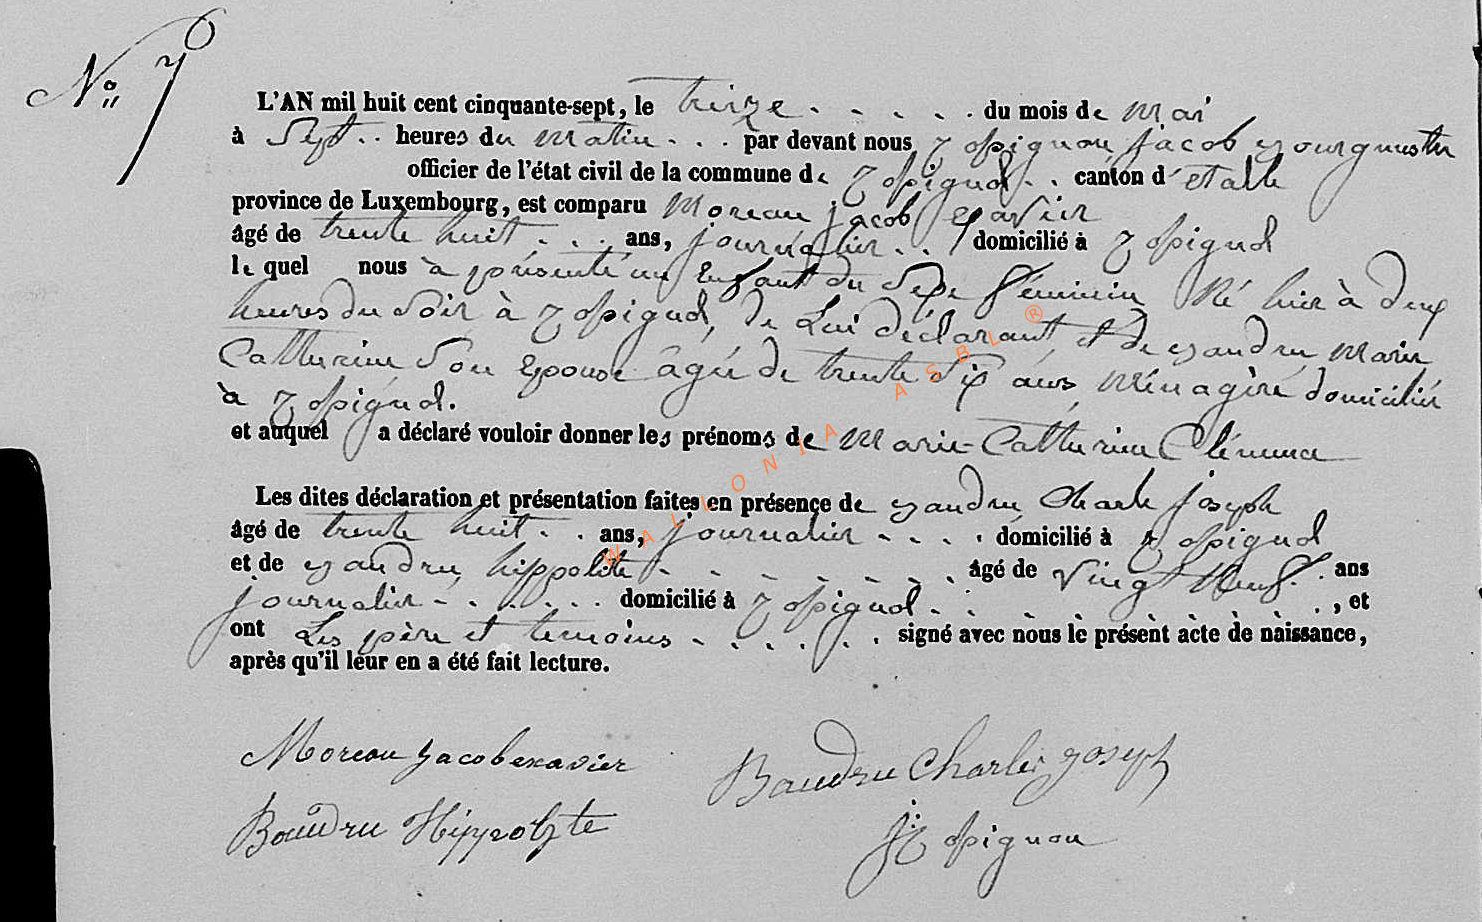 N° 7
L'AN mil huit cent cinquante-sept, le treize . . . . . du mois de Mai
à Sept . . heures du matin . . . par devant nous Jacob Bourgmestre
officier de l'état civil de la commune de . . canton d'étalle
province de Luxembourg, est comparu Moreau jacob Xavier
âgé de trente huit . . . ans, journalier . . domicilié à
le quel nous à présenté un Enfant du Sexe féminin Né hier à deux
heures du Soir à , de Lui déclarant et de Baudru Marie
Catherine Son Epouse âgée de trente Six ans, Ménagère domiciliée
à
et auquel a déclaré vouloir donner les prénoms de Marie-Catherine Clémence
Les dites déclaration et présentation faites en présence de Baudru Charle joseph
âgé de trente huit . . ans, journalier . . . . domicilié à
et de Baudru hippolite . . . . . . . . âgé de Vingt Neuf . . ans
journalier . . . . . . domicilié à . . . . . . . . , et
ont Les père et temoins . . . . . . signé avec nous le présent acte de naissance,
après qu'il leur en a été fait lecture.
Moreau Jacob exavier
Baudru Charle joseph
Baudru Hippolyte
WALLONIA ASBL ®